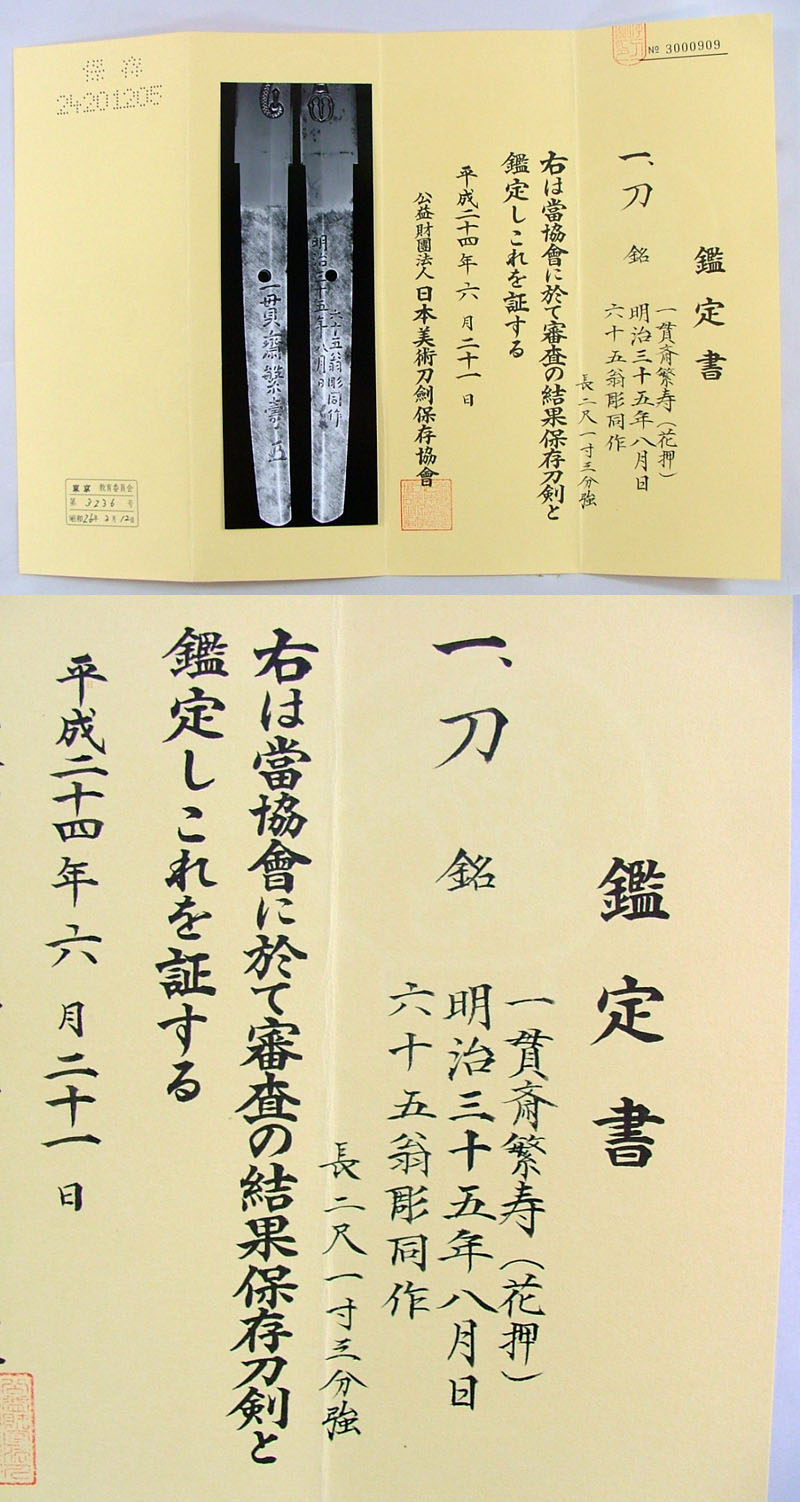 № 3000909
鑑定書
一、刀 銘
一貫斎繁寿(花押)
明治三十五年八月日
六十五翁彫同作
長二尺一寸三分強
右は當協會に於て審査の結果保存刀剣と
鑑定しこれを証する
平成二十四年六月二十一日
公益財團法人日本美術刀劍保存協會
明治三十五年八月日
六十五翁彫同作
一貫齋繁壽
保存
24201205
東京 教育委員会
第 3236 号
昭和26年2月12日
鑑定書
一、刀 銘
一貫斎繁寿(花押)
明治三十五年八月日
六十五翁彫同作
長二尺一寸三分強
右は當協會に於て審査の結果保存刀剣と
鑑定しこれを証する
平成二十四年六月二十一日